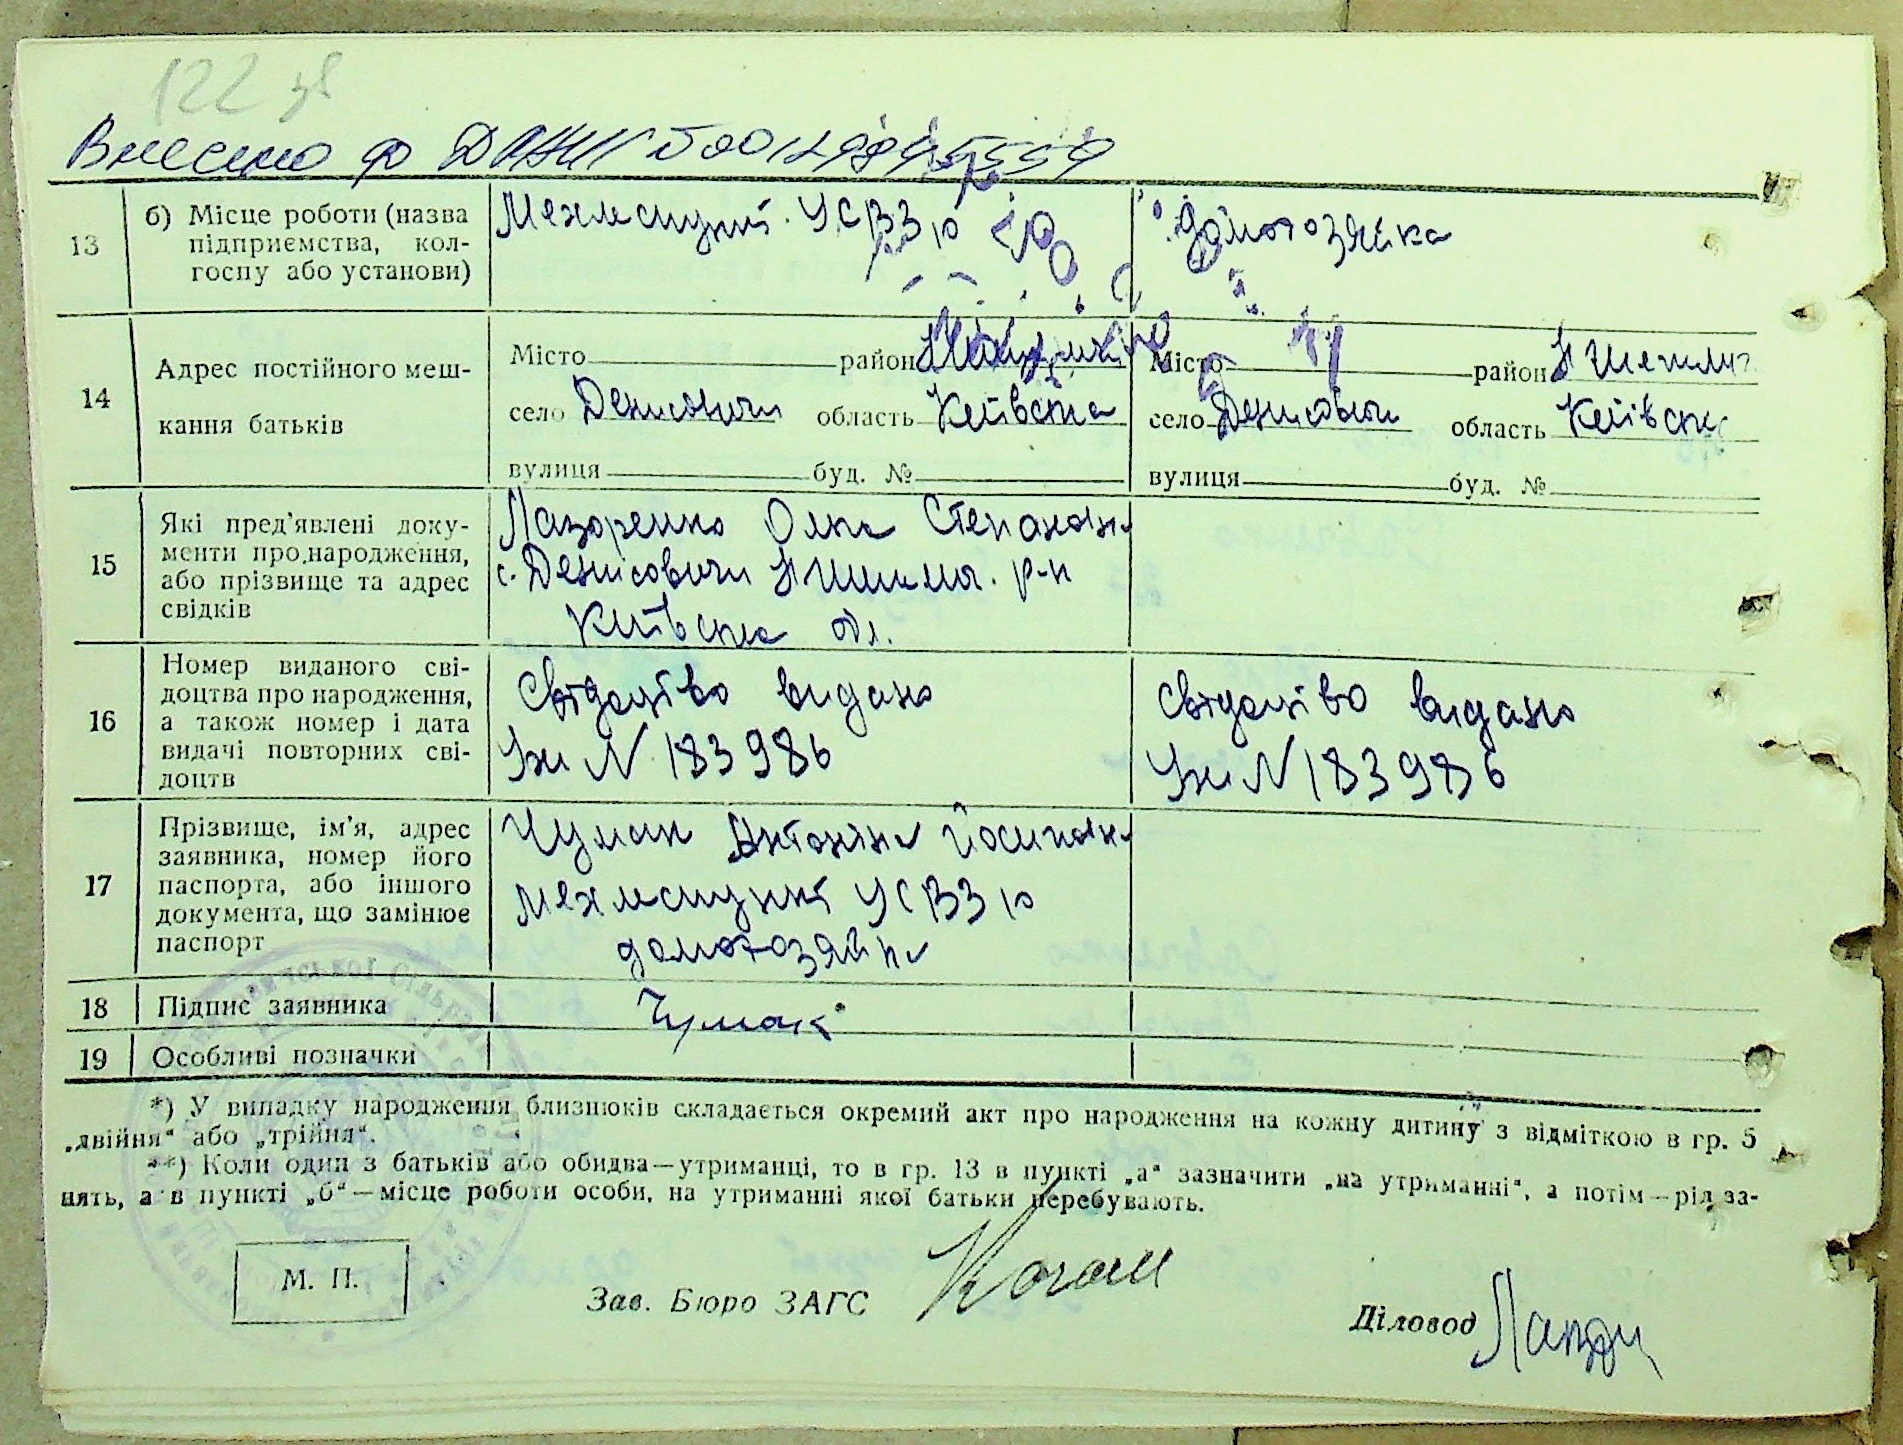 122 зв
Внесено до
13
б) Місце роботи (назва
підприємства, кол-
госпу або установи)
домогозяйка
14
Адрес постійного меш-
кання батьків
Місто район
село Денисовичи область Київська
вулиця буд. №
Місто район
село Денисовичи область Київськ
вулиця буд. №
15
Які пред'явлені доку-
менти про народження,
або прізвище та адрес
свідків
Лазоренко Ольга Степановн
с. Денисовичи р-н
Київська обл.
16
Номер виданого сві-
доцтва про народження,
а також номер і дата
видачі повторних сві-
доцтв
Свідоцтво видано
N 183986
Свідоцтво видано
N 183986
17
Прізвище, ім'я, адрес
заявника, номер його
паспорта, або іншого
документа, що замінює
паспорт
Чумак Антоніна Йосиповн
домогозяйка
18
Підпис заявника
Чумак
19
Особливі позначки
*) У випадку народження близнюків складається окремий акт про народження на кожну дитину з відміткою в гр. 5
„двійня“ або „трійня“.
**) Коли один з батьків або обидва—утриманці, то в гр. 13 в пункті „а“ зазначити „на утриманні“, а потім—рід за-
нять, а в пункті „б“—місце роботи особи, на утриманні якої батьки перебувають.
М. П.
Зав. Бюро ЗАГС
Діловод